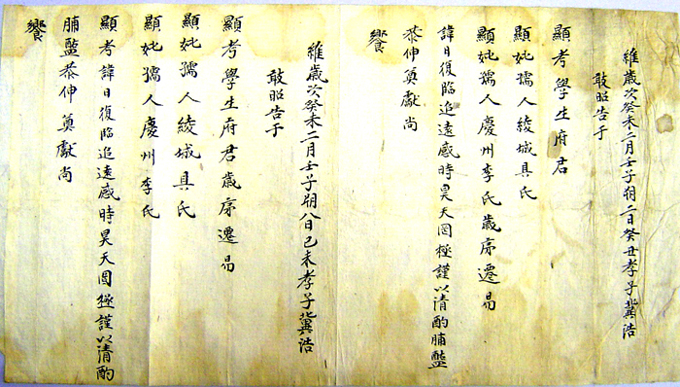 維歲次癸未二月壬子朔二日癸丑孝子冀浩
敢昭告于
顯考學生府君
顯妣孺人綾城具氏
顯妣孺人慶州李氏歲序遷易
諱日復臨追遠感時昊天罔極謹以清酌脯醢
恭伸奠獻尚
饗
維歲次癸未二月壬子朔八日己未孝子冀浩
敢昭告于
顯考學生府君歲序遷易
顯妣孺人綾城具氏
顯妣孺人慶州李氏
顯考諱日復臨追遠感時昊天罔極謹以清酌
脯醢恭伸奠獻尚
饗